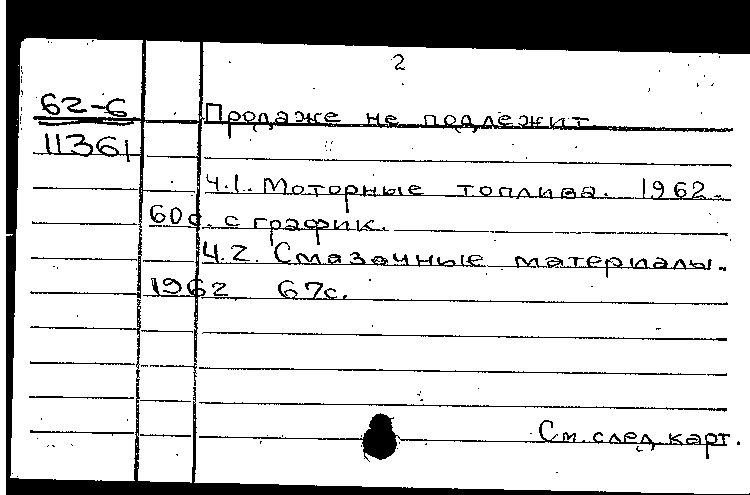 2
62-6
Продаже не подлежит.
11361
Ч.1. Моторные топлива. 1962.
60с. с график.
Ч.2. Смазочные материалы.
1962 67с.
См. след. карт.